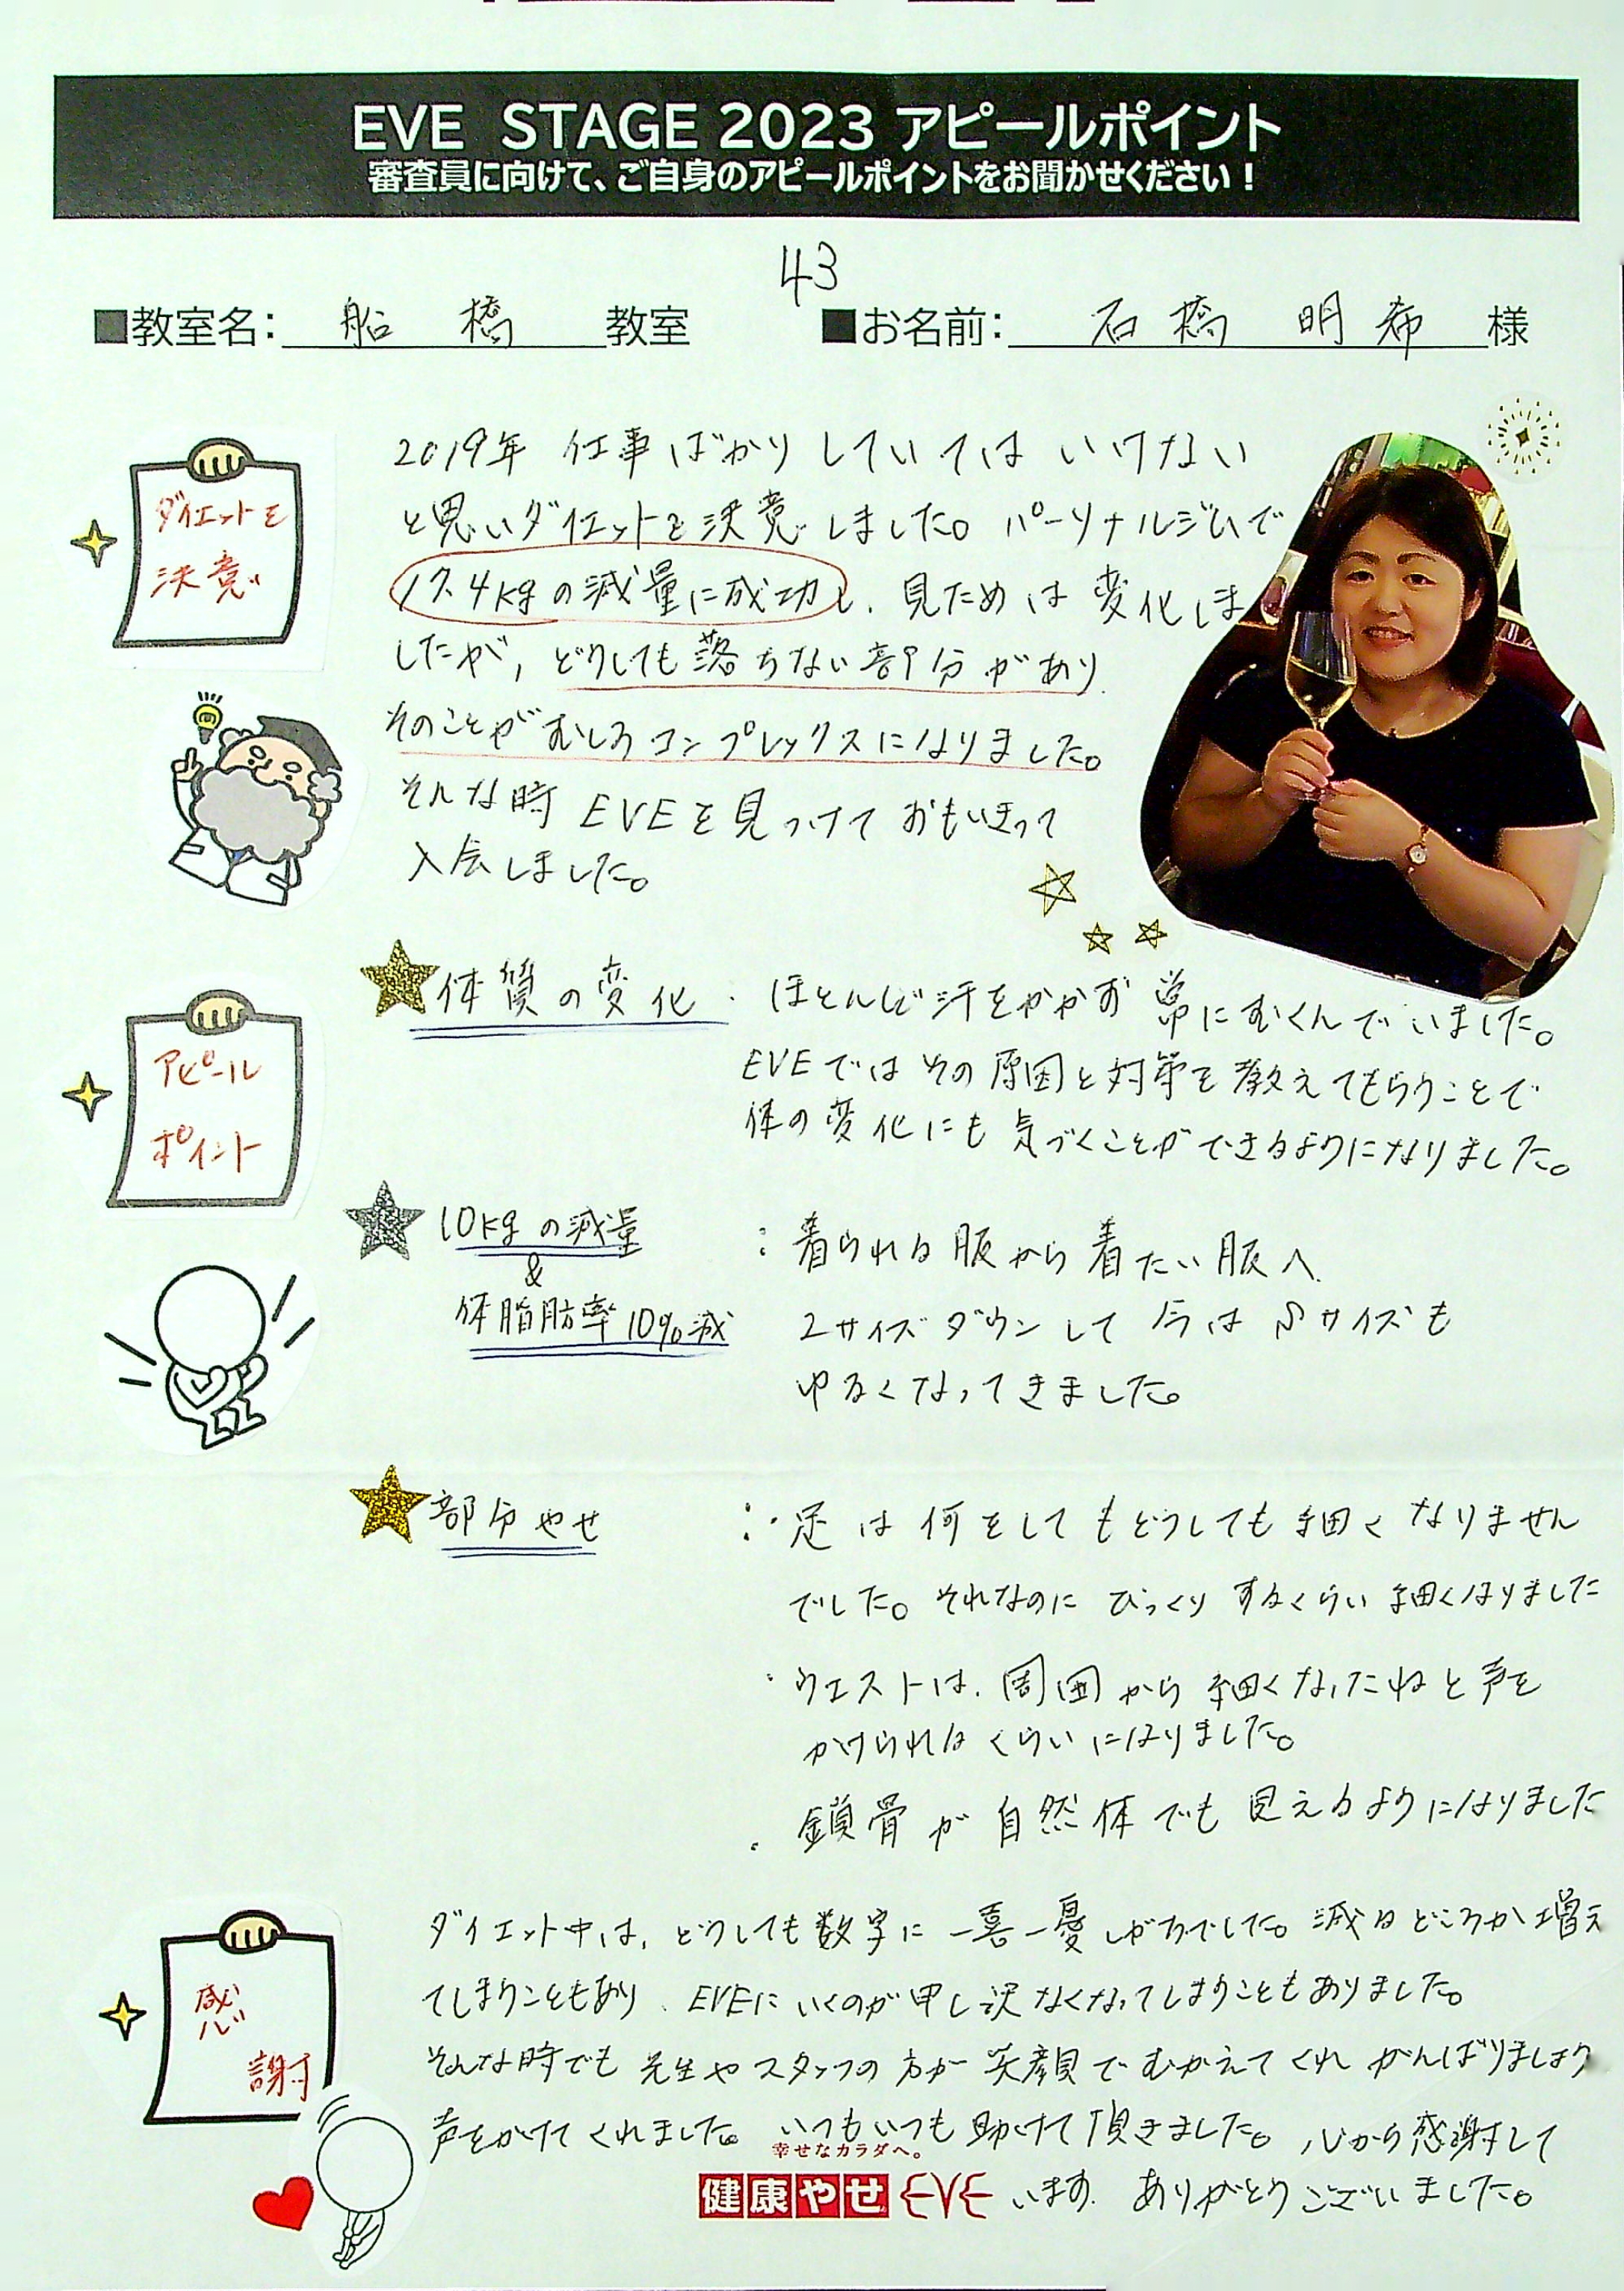 EVE STAGE 2023 アピールポイント
審査員に向けて、ご自身のアピールポイントをお聞かせください！
43
■教室名： 船橋 教室 ■お名前： 石橋 明希 様
ダイエットを
決意
2019年 仕事ばかりしていてはいけない
と思いダイエットを決意しました。パーソナルジムで
17.4kgの減量に成功し、見ためは変化しま
したが、どうしても落ちない部分があり、
そのことがむしろコンプレックスになりました。
そんな時 EVEを見つけて おもいきって
入会しました。
アピール
ポイント
体質の変化 ・ ほとんど汗をかかず 常にむくんでいました。
EVEではその原因と対策を教えてもらうことで
体の変化にも気づくことができるようになりました。
10kgの減量
&
体脂肪率10%減
：着られる服から着たい服へ
2サイズダウンして今はSサイズも
ゆるくなってきました。
部分やせ
：・足は何をしてもどうしても細くなりません
でした。それなのに びっくりするくらい細くなりました
・ウエストは、周囲から細くなったねと声を
かけられるくらいになりました。
・鎖骨が自然体でも見えるようになりました
感
謝
ダイエット中は、どうしても数字に一喜一憂しがちでした。減るどころか増え
てしまうこともあり、EVEにいくのが申し訳なくなってしまうこともありました。
そんな時でも先生やスタッフの方が笑顔でむかえてくれ がんばりましょう
声をかけてくれました。いつもいつも助けて頂きました。心から感謝して
幸せなカラダへ。
健康やせ EVE います。ありがとうございました。